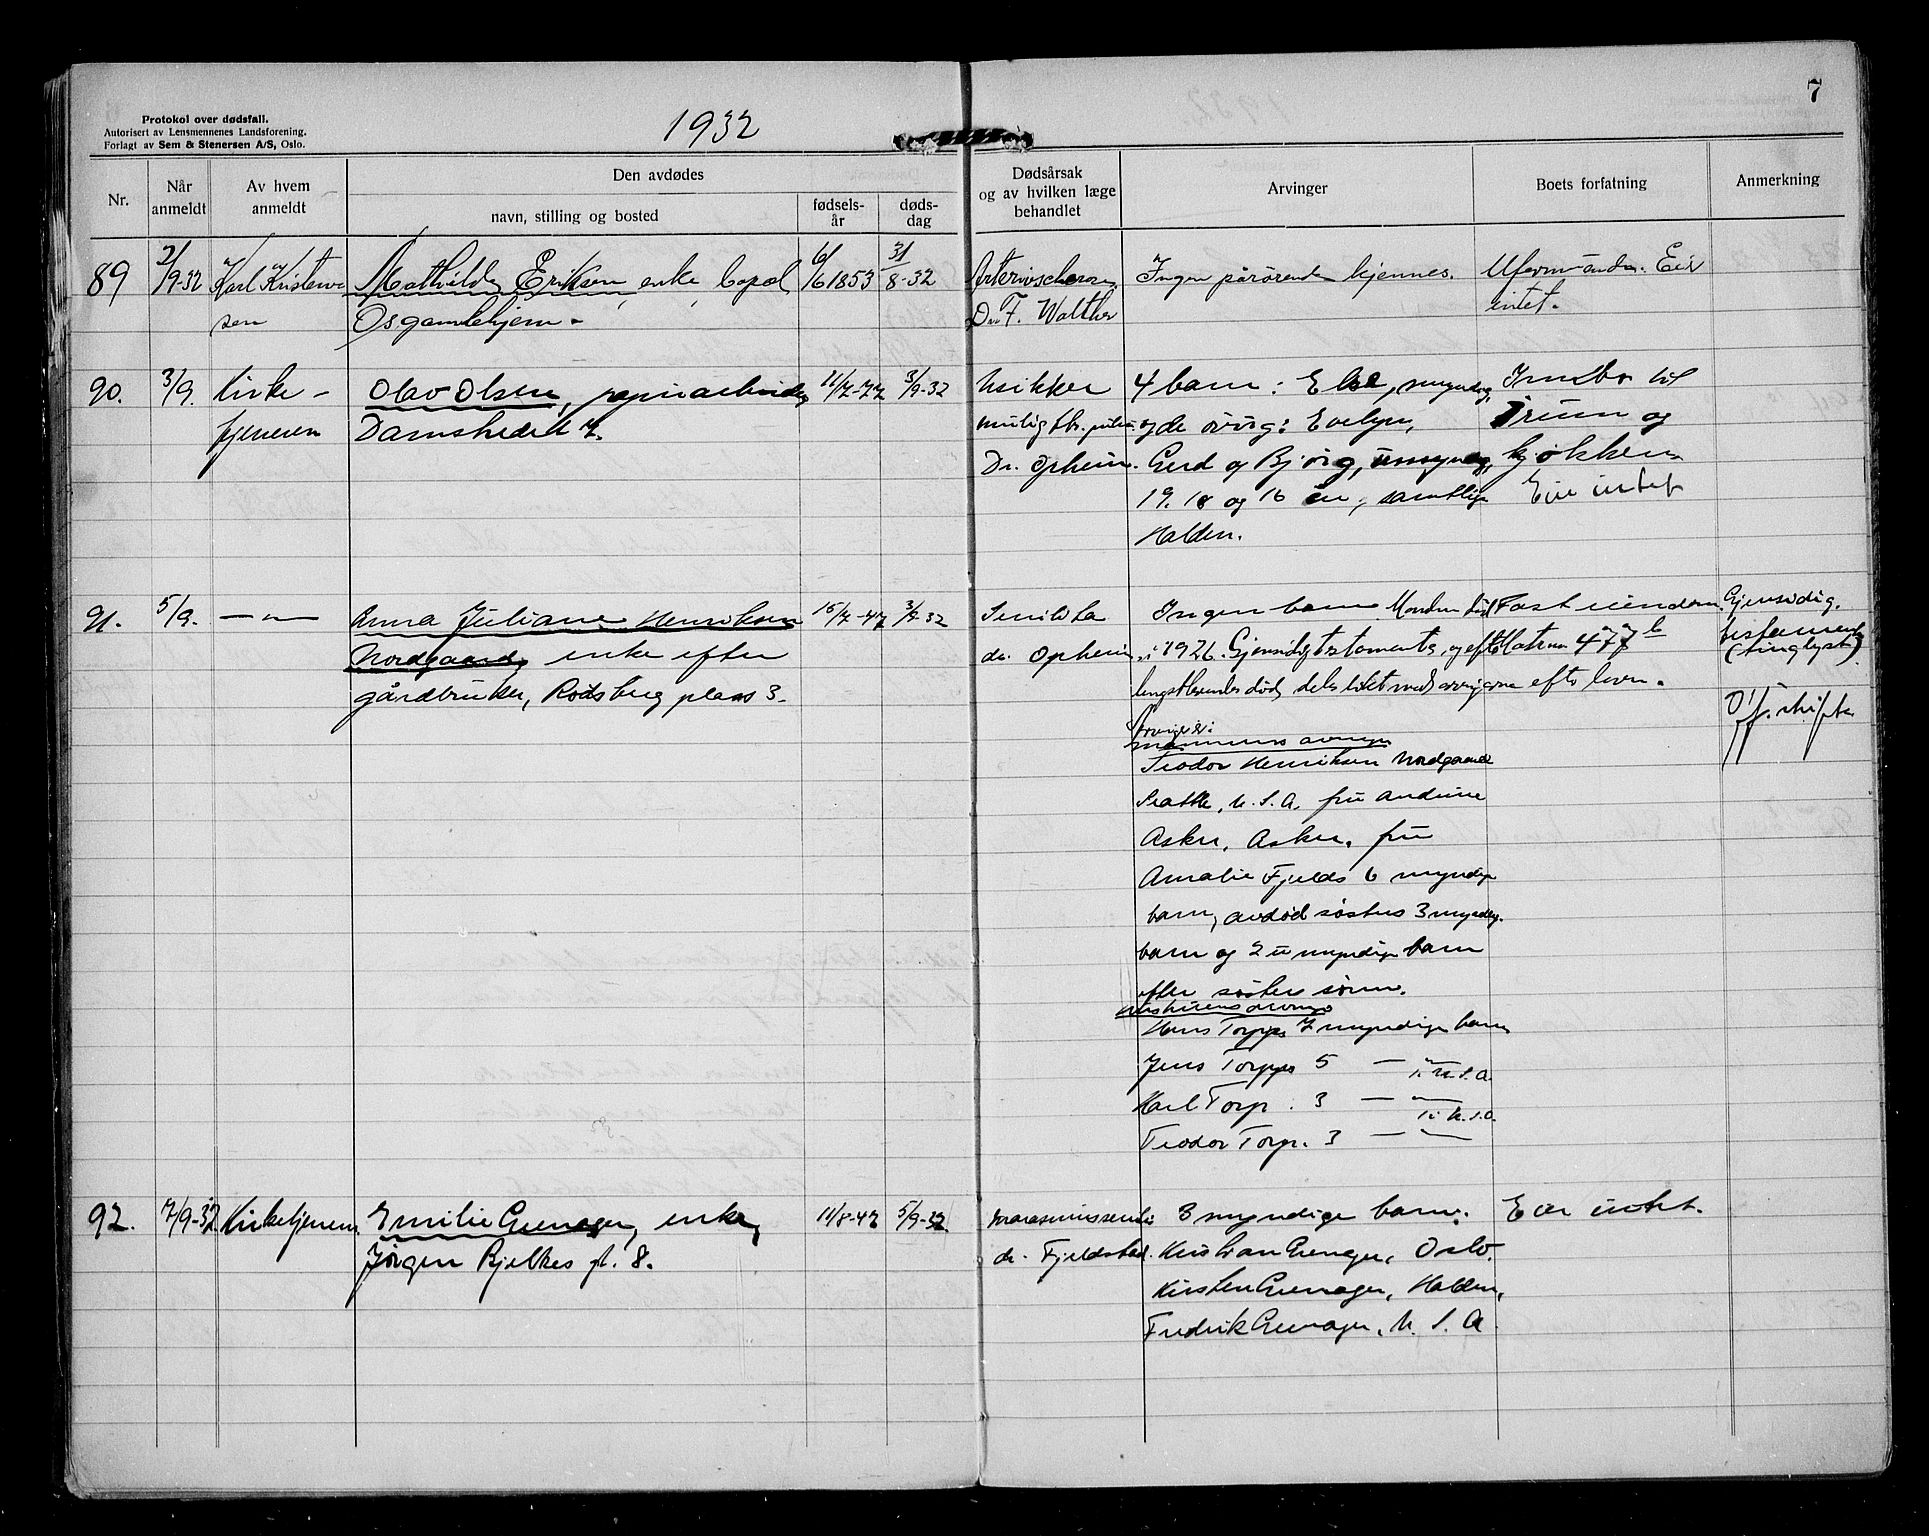 7
Protokol over dødsfall.
Autorisert av Lensmennenes Landsforening.
Forlagt av Sem & Stenersen A/S, Oslo.
1932
Nr.
Når anmeldt
Av hvem anmeldt
Den avdødes
navn, stilling og bosted
fødsels-år
døds-dag
Dødsårsak og av hvilken læge behandlet
Arvinger
Boets forfatning
Anmerkning
89
2/9-32
Karl Kristen
sen
Mathilde Eriksen, enke
Os gamlehjem.
6/6 1853
31/8-32
Dr. F. Walther
Ingen pårørende kjennes.
Uformuende. Eier
intet.
90.
3/9.
Kirke-
tjeneren
Olav Olsen, papirarbeider
Damstredet 7.
11/7-77
3/9-32
Usikker
muligt
Dr. Opheim.
4 barn: Else, myndig,
og de øvrig: Evelyn,
Gerd og Bjørg, umyndig,
19. 18 og 16 år, samtlige
Halden.
Innbo til
1 rum og
kjøkken
Eier intet
91.
5/9.
— " —
Anna Juliane Henriksen
Nordgaard, enke efter
gårdbruker, Rødsberg plass 3.
15/7-47
3/9-32
Senilitas
dr. Opheim
Ingen barn. Mannen død
i 1926. Gjensidig testamente, og efter
lengstlevendes død, deles boet med arvingerne efter loven.
Arvinger:
mannens arvinger
Teodor Henriksen Nordgaard
Seattle, U.S.A. fru Andrine
Asker, Asker, fru
Amalie Fjelds 6 myndige
barn, avdød søsters 3 myndig.
barn og 2 umyndige barn
efter søsters sønn.
hustruens arvinger
Hans Torps 7 myndige barn
Jens Torps 5 — " —
i U.S.A.
Karl Torp. 3 — " —
i U.S.A.
Teodor Torp. 3 — " —
Fast eiendom.
Matr. nr 477 b
Gjensidig.
testamente
(tinglyst)
Off. skifte
92.
7/9-32
Kirketjeneren.
Emilie Grenager, enke,
Jørgen Bjelkes gt. 8.
11/8-47
5/9-32
marasmus senilis
dr. Fjeldstad.
3 myndige barn:
Kristian Grenager, Oslo.
Kirsten Grenager, Halden,
Fredrik Grenager, U.S.A.
Eier intet.